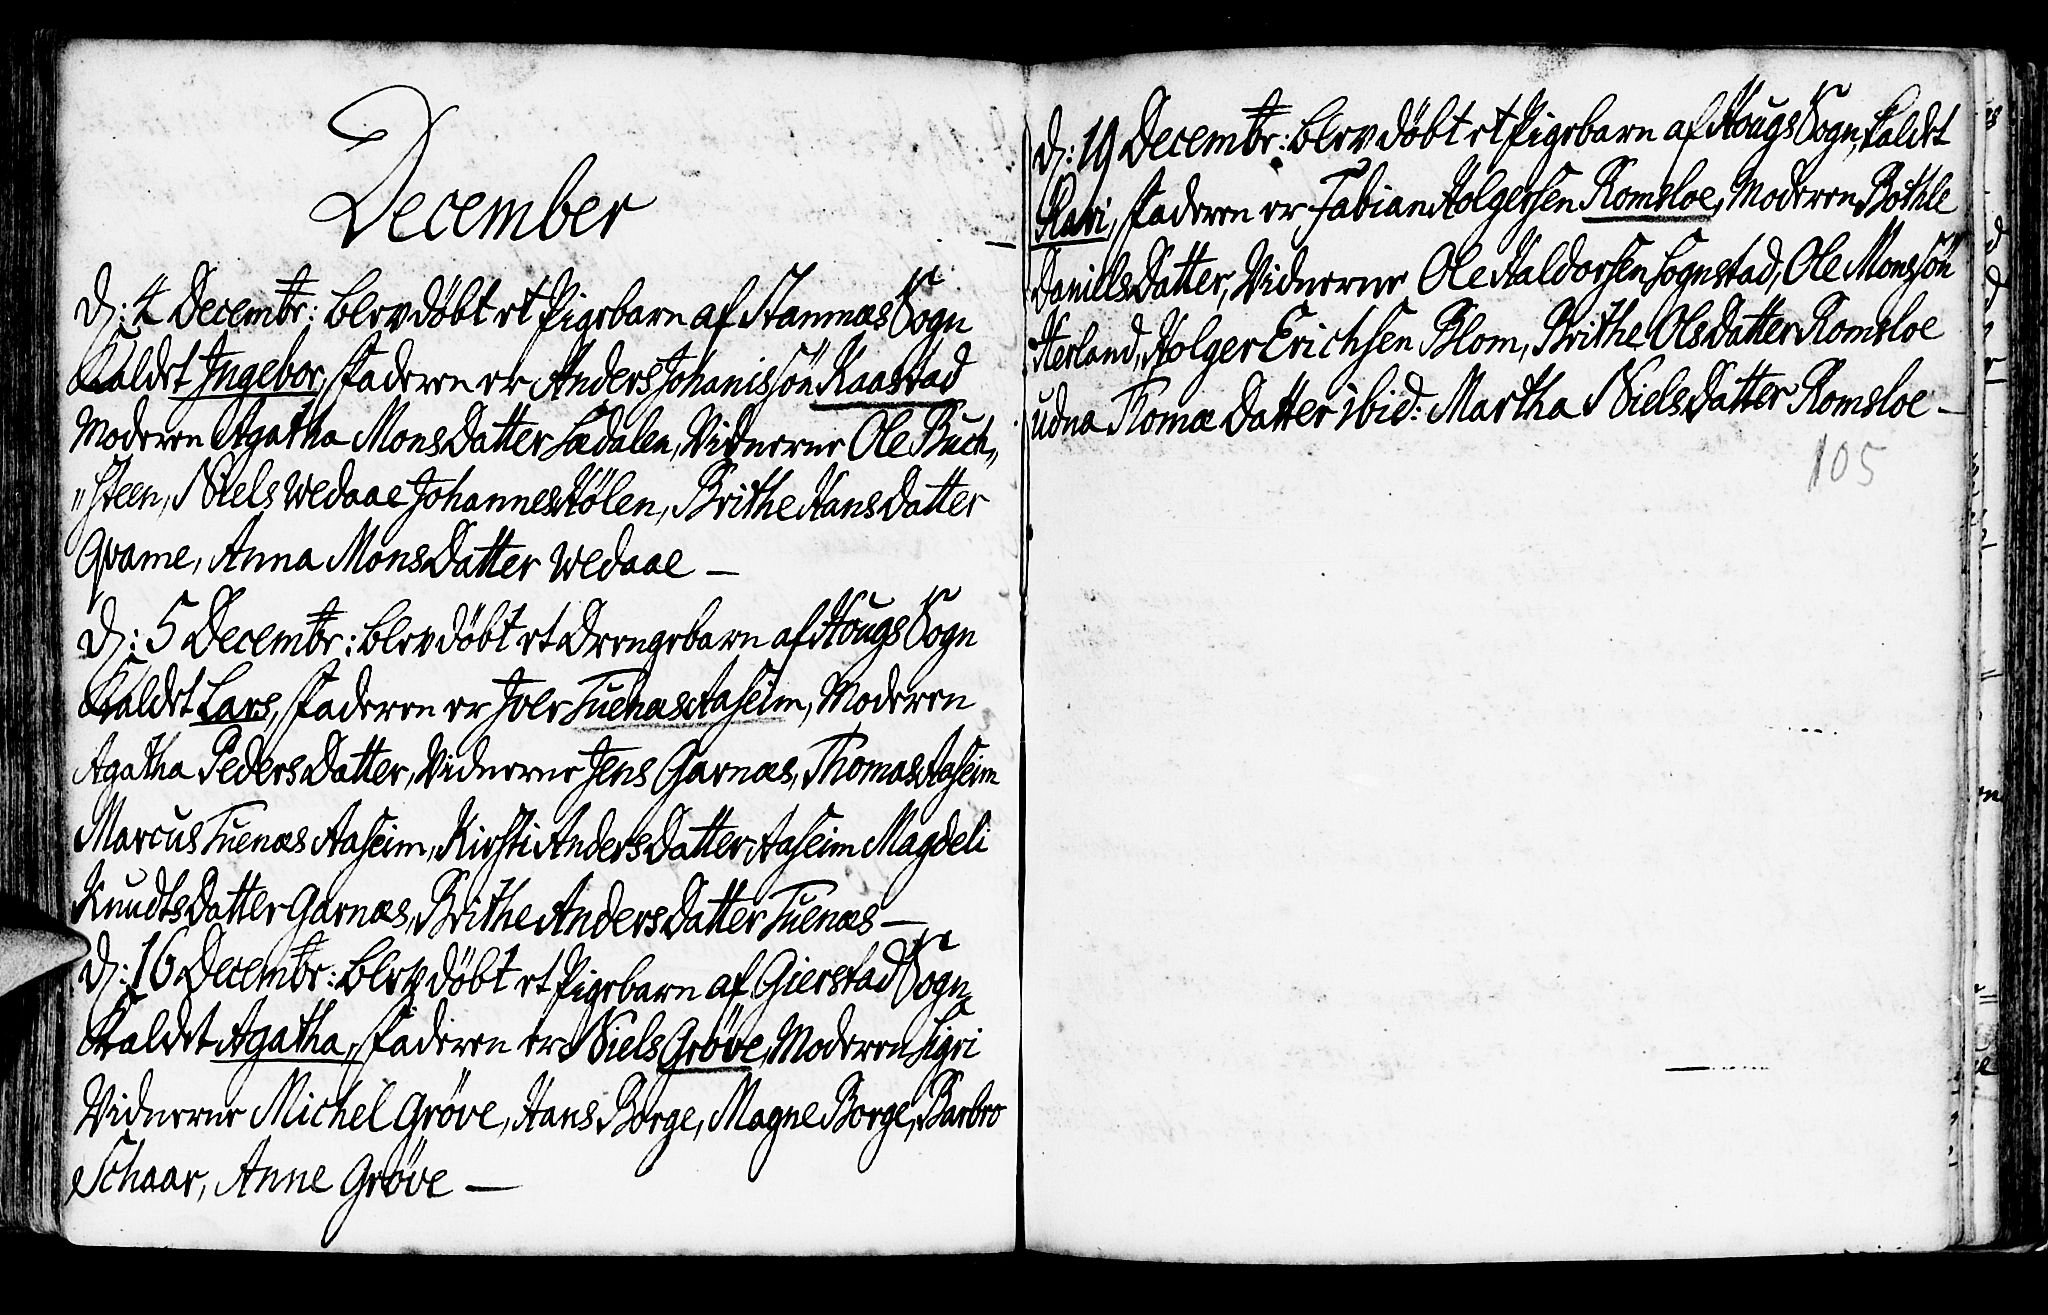 December
D: 4 Decembr: blev døbt et Pigebarn af Stamnæs Sogn
Kaldet Ingebor, Faderen er Anders Johanissøn Kaastad
Moderen Agatha MonsDatter Lædalen, Vidnerne Ole Buch„
„steen, Niels Wedaae Johannes Hølen, Brithe HansDatter
Qvame, Anna MonsDatter Wedaae —
D: 5 Decembr: blev døbt et Drengebarn af Hougs Sogn
Kaldet Lars, Faderen er Joen Tuenæs Aaseim, Moderen
Agatha PedersDatter, Vidnerne Jens Garnæs, Thomas Aaseim
Marcus Tuenæs Aaseim, Kirsti AndersDatter Aaseim Magdeli
KnudtsDatter Garnæs, Brithe AndersDatter Tuenæs —
D: 16 Decembr: blev døbt et Pigebarn af Gierstad Sogn
Kaldet Agatha, Faderen er Niels Grøve, Moderen Sigri
Vidnerne Michel Grøve, Hans Borge, Magne Borge, Barbro
Schaar, Anne Grøve —
D: 19 Decembr: blev døbt et Pigebarn af Hougs Sogn, kaldet
Kari, Faderen er Fabian Holgersen Romsloe, Moderen Bothle
DanielsDatter, Vidnerne Ole Haldorsen Sognstad, Ole Monssøn
Herland, Holger Erichsen Blom, Brithe OlsDatter Romsloe
Thomæ Datter ibid: Martha NielsDatter Romsloe —
105